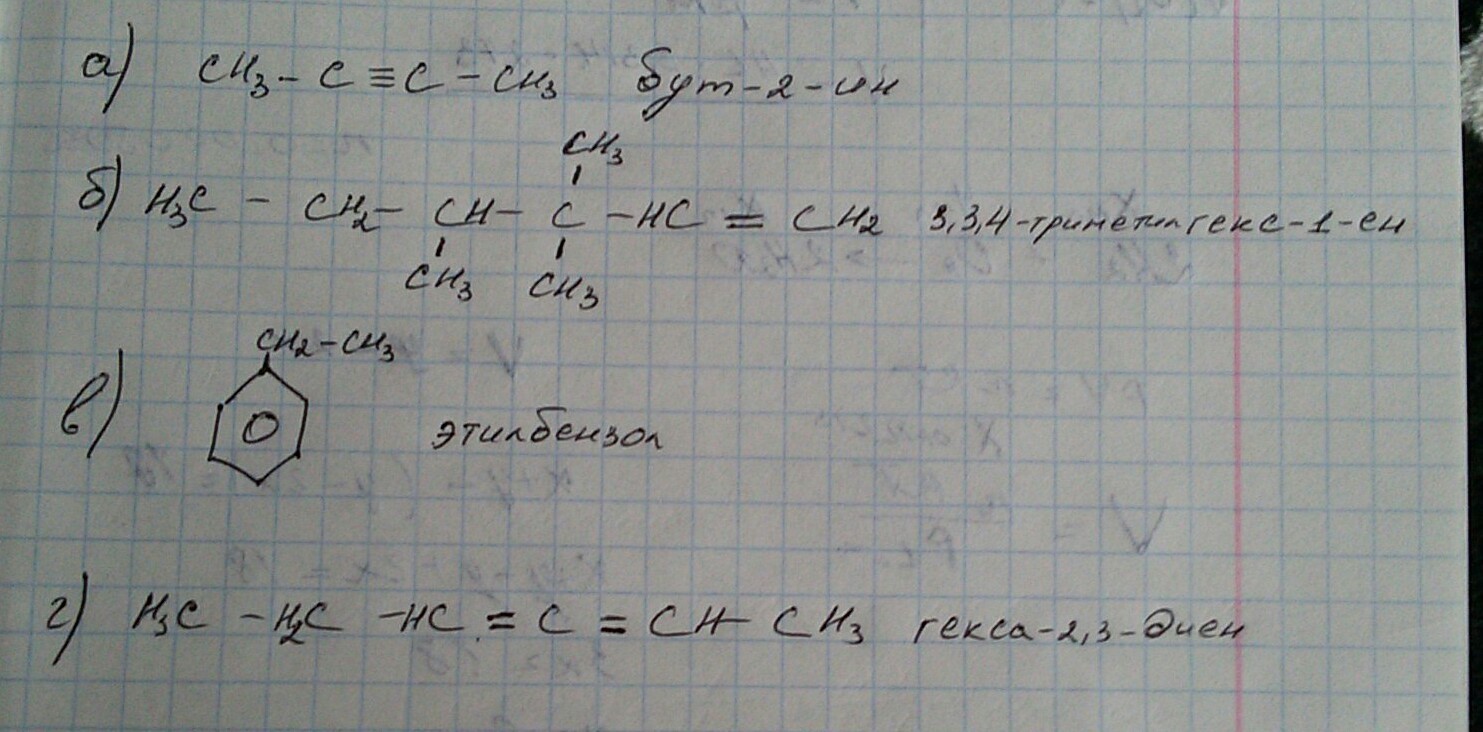 а) CH₃ – C ≡ C – CH₃ бут-2-ин
CH₃
б) H₃C – CH₂ – CH – C – HC = CH₂ 3,3,4-триметилгекс-1-ен
CH₃ CH₃
CH₂ – CH₃
в) этилбензол
г) H₃C – H₂C – HC = C = CH – CH₃ гекса-2,3-диен